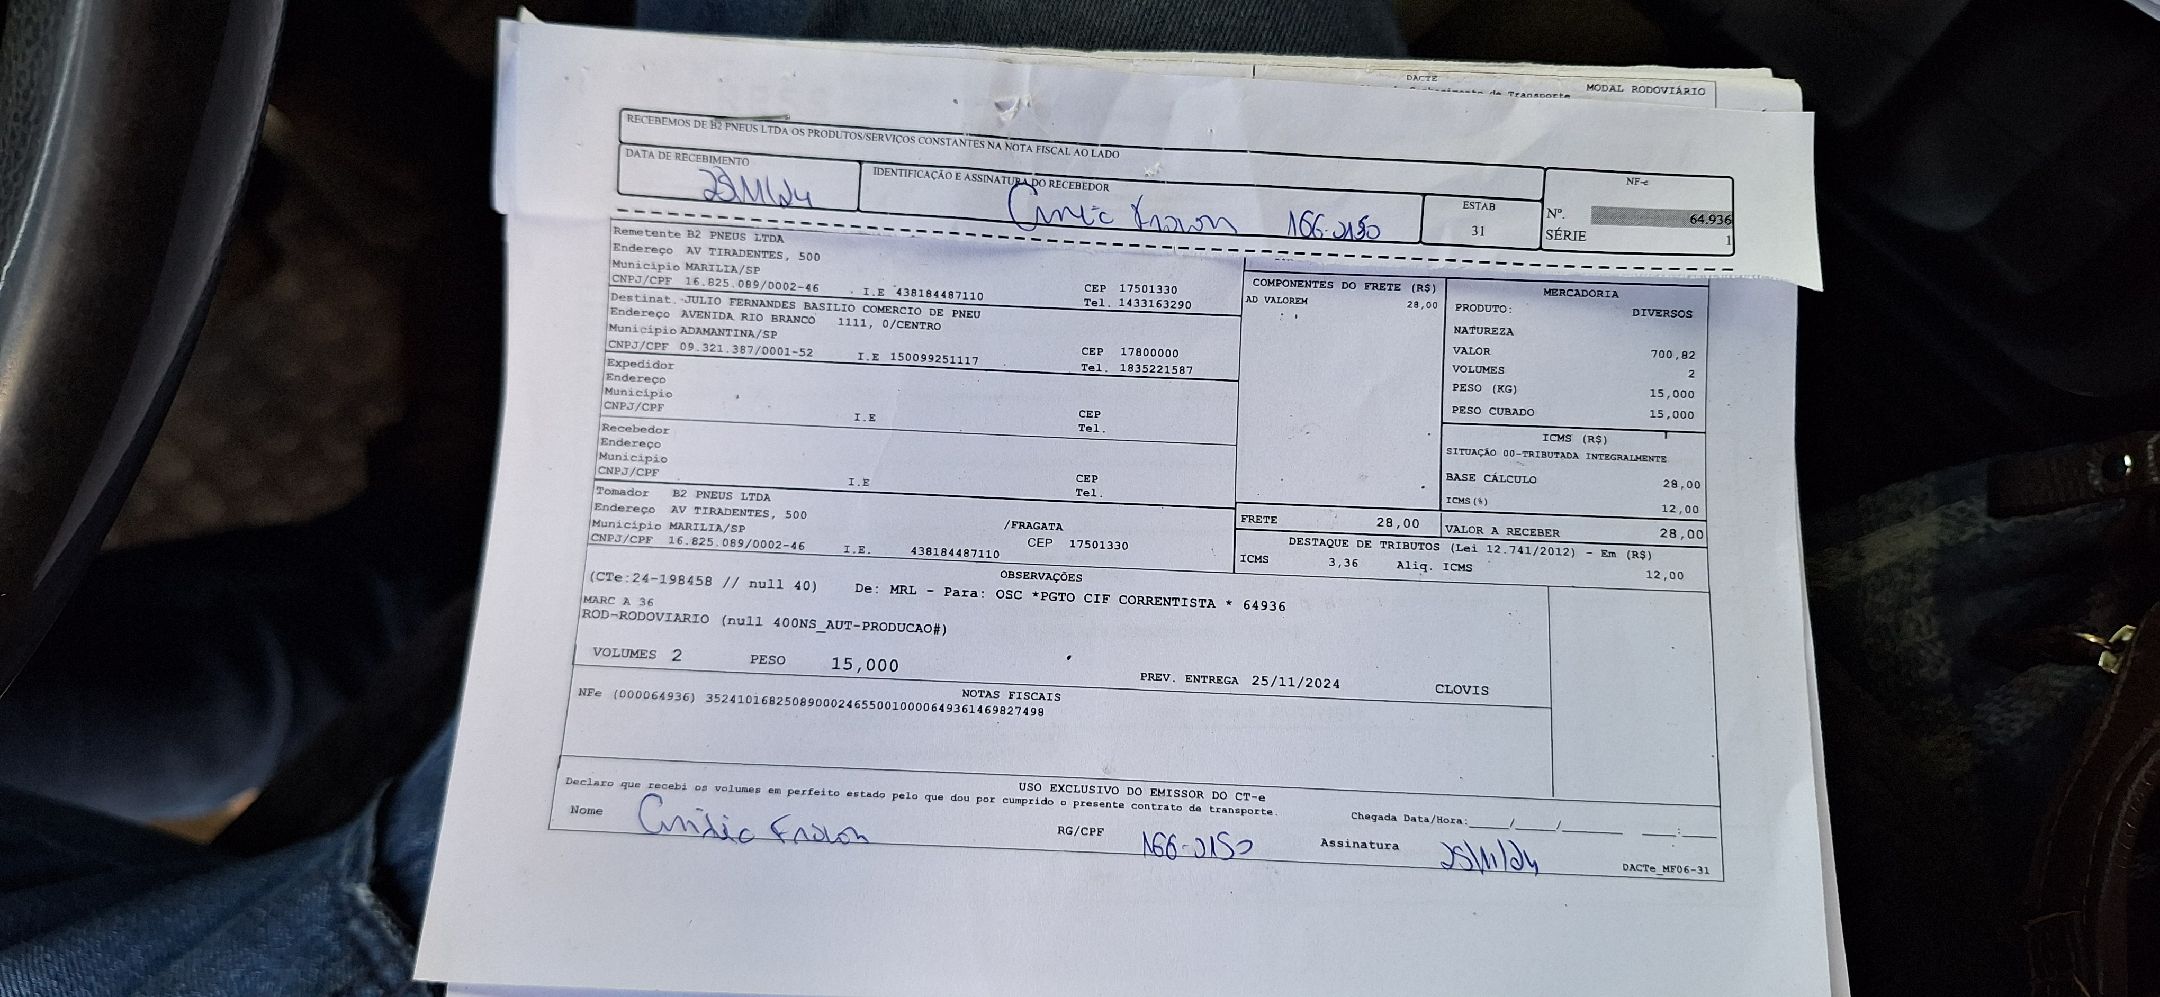 DACTE
MODAL RODOVIÁRIO
de Transporte
RECEBEMOS DE B2 PNEUS LTDA OS PRODUTOS/SERVIÇOS CONSTANTES NA NOTA FISCAL AO LADO
DATA DE RECEBIMENTO
25/11/24
IDENTIFICAÇÃO E ASSINATURA DO RECEBEDOR
166-2150
ESTAB
31
NF-e
Nº. 64.936
SÉRIE 1
Remetente B2 PNEUS LTDA
Endereço AV TIRADENTES, 500
Município MARILIA/SP
CNPJ/CPF 16.825.089/0002-46 I.E 438184487110
CEP 17501330
Tel. 1433163290
Destinat. JULIO FERNANDES BASILIO COMERCIO DE PNEU
Endereço AVENIDA RIO BRANCO 1111, 0/CENTRO
Município ADAMANTINA/SP
CNPJ/CPF 09.321.387/0001-52 I.E 150099251117
CEP 17800000
Tel. 1835221587
Expedidor
Endereço
Município
CNPJ/CPF I.E
CEP
Tel.
Recebedor
Endereço
Município
CNPJ/CPF I.E
CEP
Tel.
Tomador B2 PNEUS LTDA
Endereço AV TIRADENTES, 500 /FRAGATA
Município MARILIA/SP CEP 17501330
CNPJ/CPF 16.825.089/0002-46 I.E. 438184487110
COMPONENTES DO FRETE (R$)
AD VALOREM 28,00
FRETE 28,00
MERCADORIA
PRODUTO: DIVERSOS
NATUREZA
VALOR 700,82
VOLUMES 2
PESO (KG) 15,000
PESO CUBADO 15,000
ICMS (R$)
SITUAÇÃO 00-TRIBUTADA INTEGRALMENTE
BASE CÁLCULO 28,00
ICMS(%) 12,00
VALOR A RECEBER 28,00
DESTAQUE DE TRIBUTOS (Lei 12.741/2012) - Em (R$)
ICMS 3,36 Aliq. ICMS 12,00
OBSERVAÇÕES
(CTe:24-198458 // null 40) De: MRL - Para: OSC *PGTO CIF CORRENTISTA * 64936
MARC A 36
ROD-RODOVIARIO (null 400NS_AUT-PRODUCAO#)
VOLUMES 2 PESO 15,000 PREV. ENTREGA 25/11/2024 CLOVIS
NOTAS FISCAIS
NFe (000064936) 35241016825089000246550010000649361469827498
USO EXCLUSIVO DO EMISSOR DO CT-e
Declaro que recebi os volumes em perfeito estado pelo que dou por cumprido o presente contrato de transporte.
Chegada Data/Hora:____/____/______ ___:___
Nome
RG/CPF 166-2150
Assinatura 25/11/24
DACTe_MF06-31